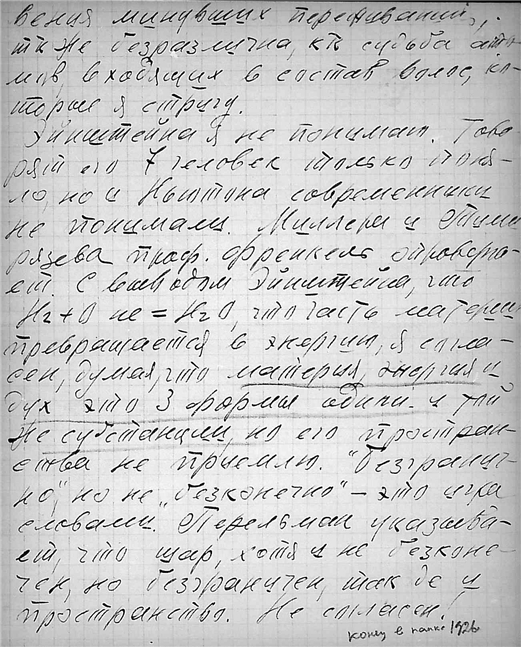 вения минувших переживаний,
тк же безразлична, кк судьба ато-
мов, входящих в состав волос, ко-
торые я стригу.
Эйнштейна я не понимаю. Гово-
рят его 7 человек только поня-
ло, но и Ньютона современники
не понимали. Миллера и Тими-
рязева проф. Френкель опроверга-
ет. С выводом Эйнштейна, что
H2+O не = H2O, что часть материи
превращается в энергию, я согла-
сен, думая, что материя, энергия и
дух это 3 формы одной и той
же субстанции, но его простран-
ства не приемлю. "Безгранич-
но", но не "безконечно" – это игра
словами. Перельман указыва-
ет, что шар, хотя и не безконе-
чен, но безграничен, так де и
пространство. Не согласен!
конец в папке 1926